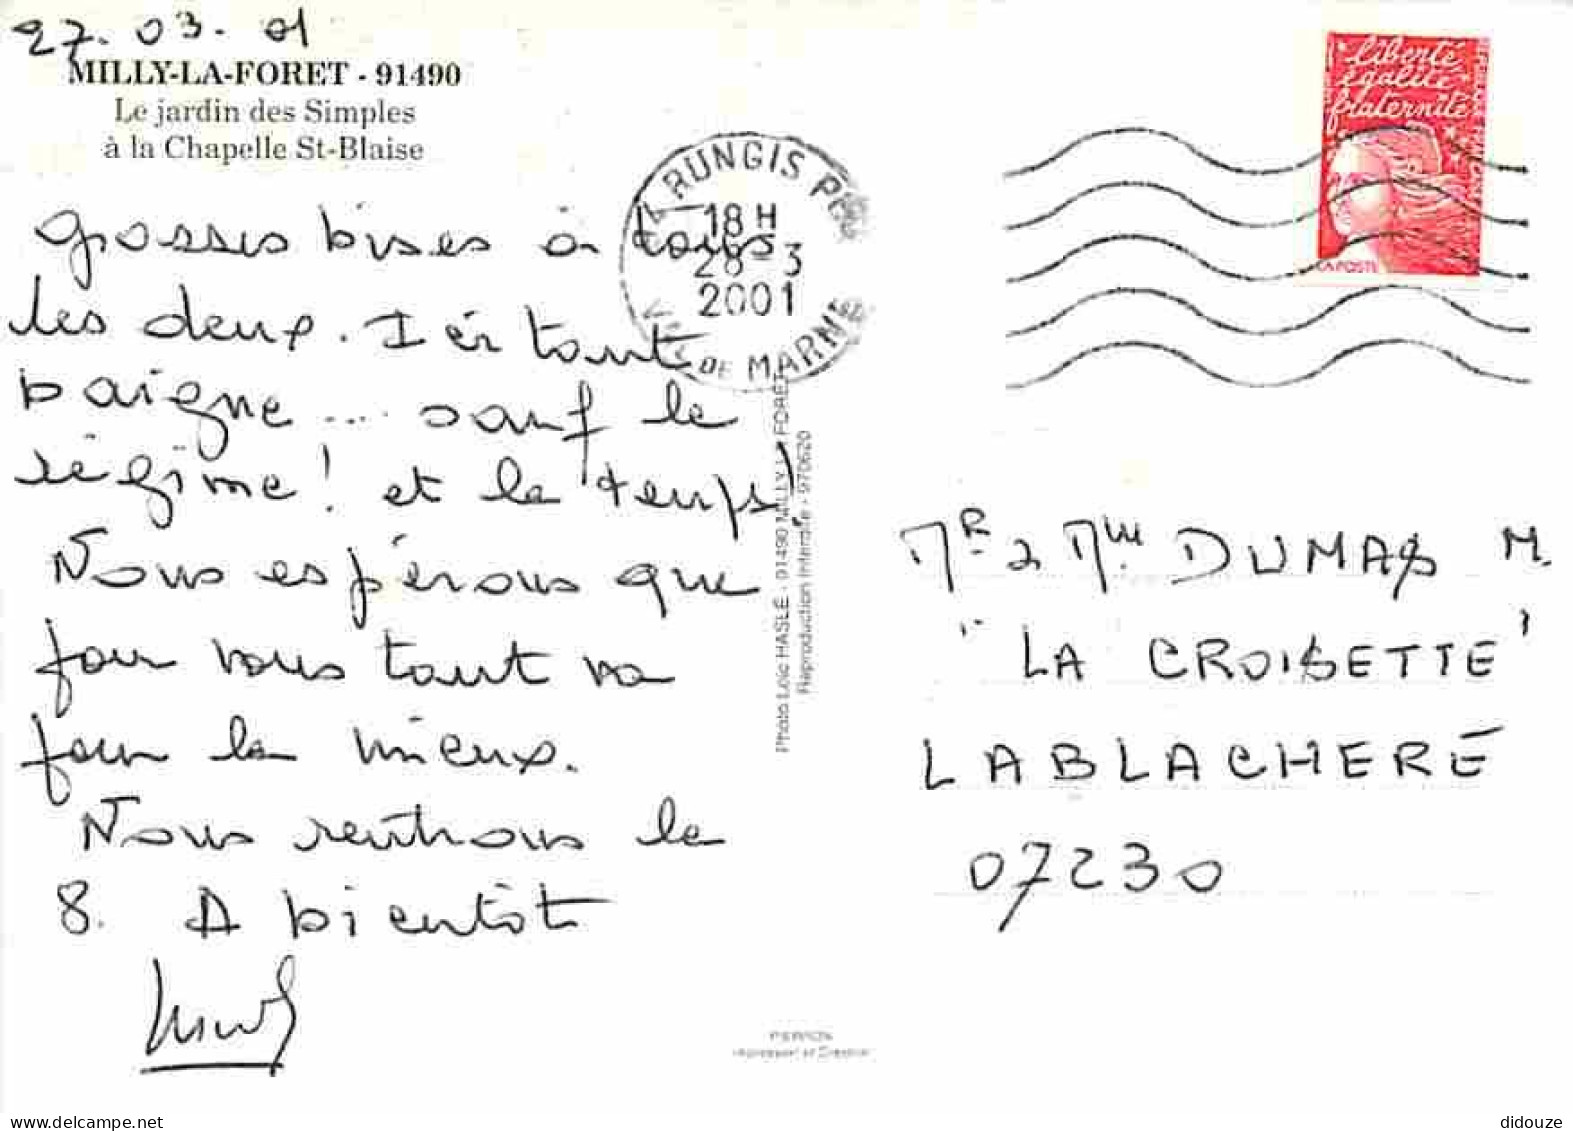 27.03.01
MILLY-LA-FORET - 91490
Le jardin des Simples
à la Chapelle St-Blaise
grosses bises à tous
les deux. Ici tout
baigne ... sauf le
régime! et le temps!
Nous espérons que
pour vous tout va
pour le mieux.
Nous rentrons le
8. A bientôt
RUNGIS
18 H
28-3
2001
VAL DE MARNE
Photo Loïc HASLÉ - 91490 MILLY LA FORET
Reproduction Interdite - 970620
liberté
égalité
fraternité
LA POSTE
Mr & Mme DUMAS M.
"LA CROISETTE"
LABLACHERE
07230
didouze